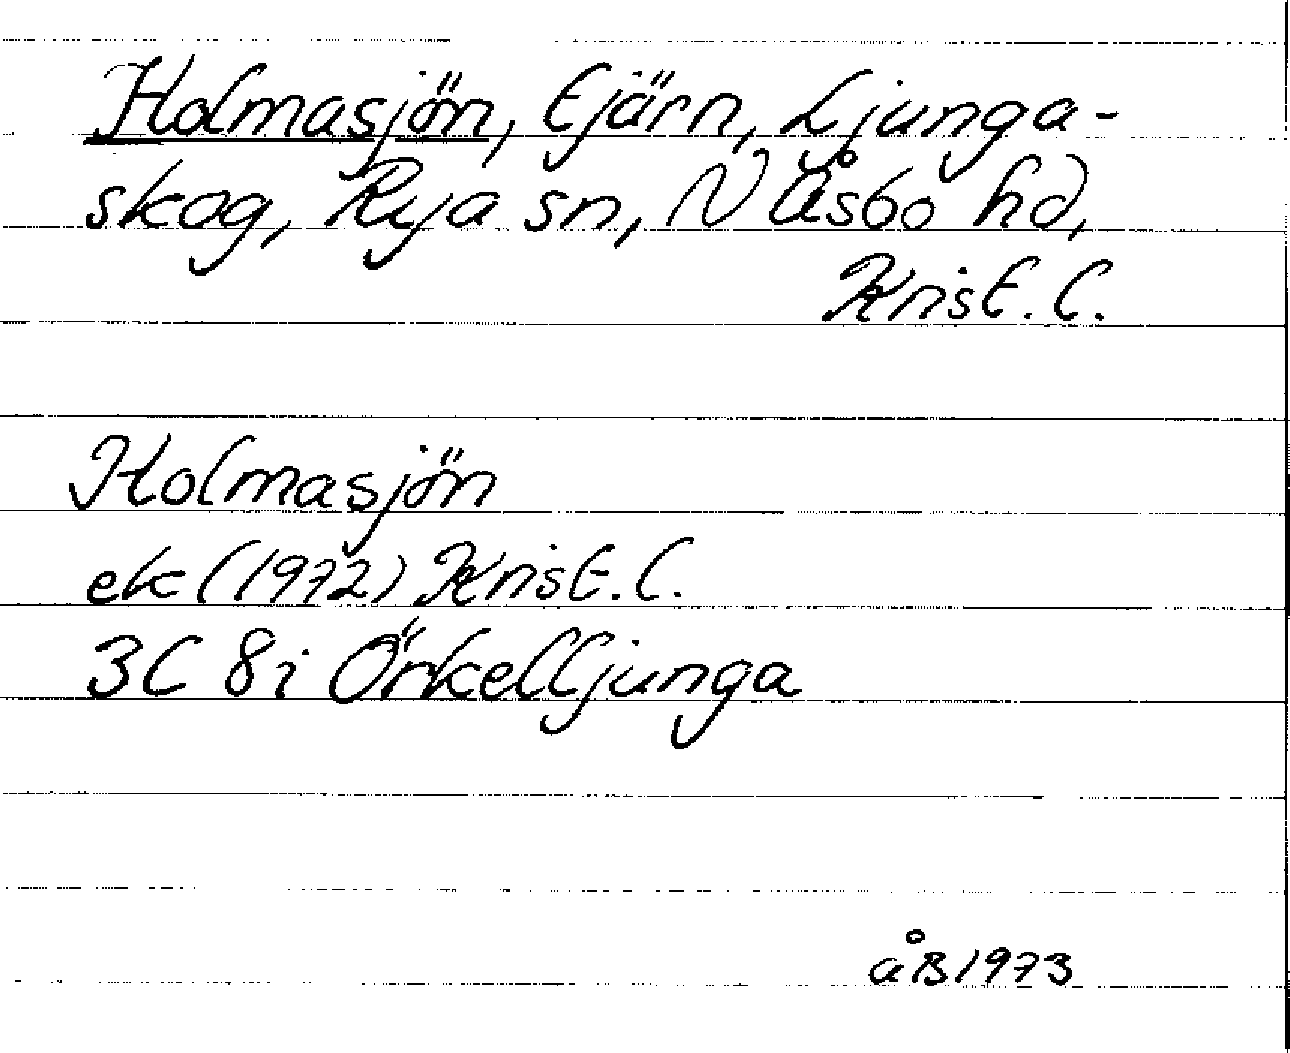 Holmasjön, tjärn, Ljunga-
skog, Rya sn, N Åsbo hd,
Krist. l.
Holmasjön
ek (1972) Krist. l.
3C 8i Örkelljunga
åB 1973